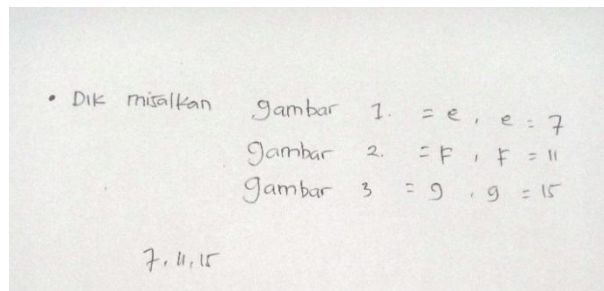 • Dik misalkan gambar 1. = e, e = 7
gambar 2. = F, F = 11
gambar 3 = g, g = 15
7, 11, 15